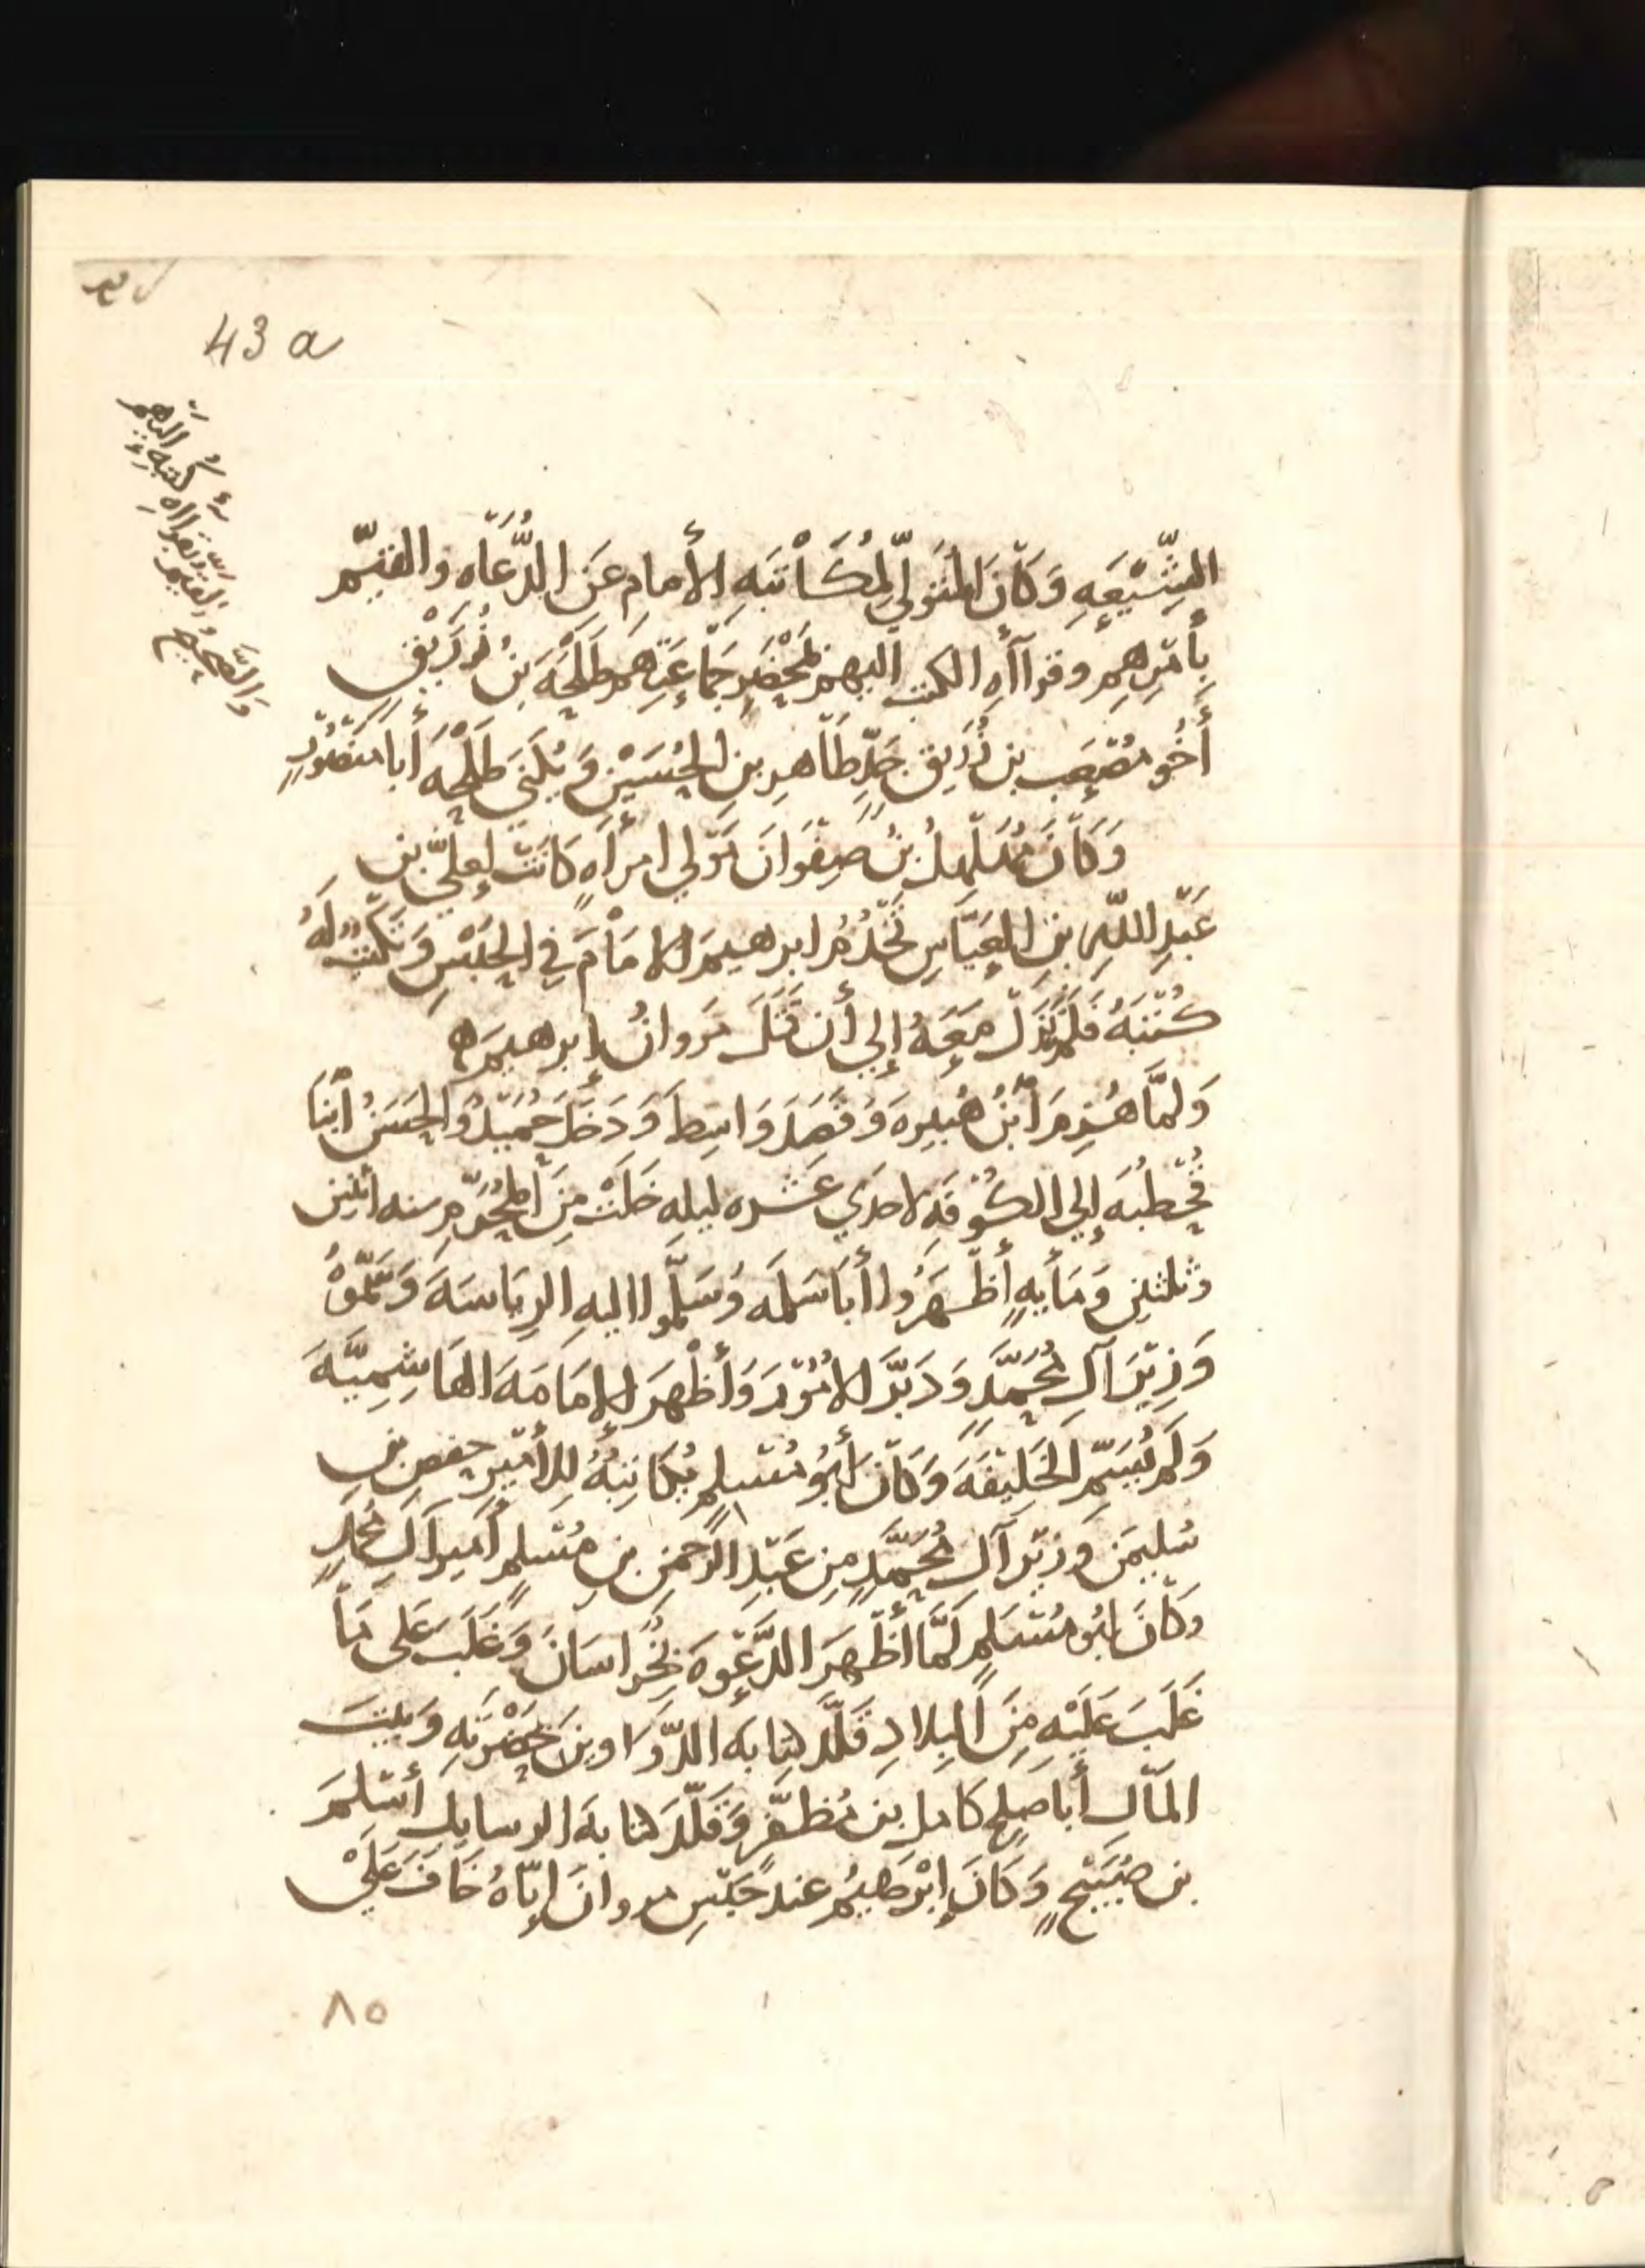 43 a
الشِّيْعَهِ وَكَانَ المُتَوَلِّي لِمُكَاتَبَهِ الأمامِ عَنِ الدُّعَاه والقيّم
بِأَمْرِهِمْ وقراأهِ الكتب اليهم بمَحْضَرِ جَمَاعَتِهِم طَلْحَهَ بنُ زُرَيْقٍ
أَخُو مُصْعَب بن زُرَيق جَدِّ طَاهرِ بنِ الحُسَيْنِ وَيُكْنَي طَلْحَه أبا مَنصُورٍ
وَكَانَ مُهَلْهِلُ بنُ صفْوَانَ مَوْلي امرأَهٍ كَانَتْ لِعَلِيّ بن
عَبْدِ اللَّهِ بنِ العَبَّاسِ يَخْدُمُ ابرهيمَ الامَامَ في الحَبْسِ وَيَكْتُبُ لَهُ
كُتُبَهُ فَلَمْ يَزَلْ مَعَهُ إلي أن قَتَلَ مَروانُ إبرهيمَ ه
وَلمَّا هُزِمَ ابْنُ هُبَيرهَ وَقَصَدَ وَاسِطَ وَدَخَلَ حُمَيْدٌ وَالحَسَنُ ابْنَا
قُحْطبَهَ إلي الكُوْفَهِ لاحدَي عَشره ليلهِ خَلَتْ مِنَ المُحَرَّمِ سنه اثنين
وثلثين وَمَأيهٍ أظْهَرُوا أبَا سَلَمَه وَسَلَّمُوا اليهِ الرِيَاسَهَ وَسَمَّوْهُ
وَزِيْرَ آلِ مُحَمَّدٍ وَدَبَّرَ الامُوْرَ وَأظْهَرَ الإمَامَهَ الهَاشِمِيَّهَ
وَلَم يُسَمِّ الخَلِيْفَهَ وَكَانَ أبُو مُسْلِمٍ يُكَاتِبُهُ لِلأَمْيِر حفص بن
سُليمَن وَزيْر آلِ مُحَمَّدٍ مِن عَبْدِ الرَّحمنِ بنِ مُسْلِمٍ أَمِيرِ آلِ مُحَمَّدٍ
وَكَانَ ابُو مُسْلِمٍ لَمَّا أَظْهَرَ الدَّعْوهَ بِخُرَاسَانَ وَغَلَبَ عَلى مَا
غَلَبَ عَلَيْه مِنَ البِلادِ قَلَّدَ كِتَابهَ الدَّوَاوينَ بحَضْرَتهِ وَبَيْتَ
المَالِ أَبا صَلحٍ كَامل بن مُظَفَّرٍ وَقَلَّدَ كتابهَ الرسايِل أسْلمَ
بن صُبَيْحٍ وَكَانَ إبْرَهيمُ عند حَبْسِ مروانَ إيَّاهُ خَافَ عَلَيْ
٨٥